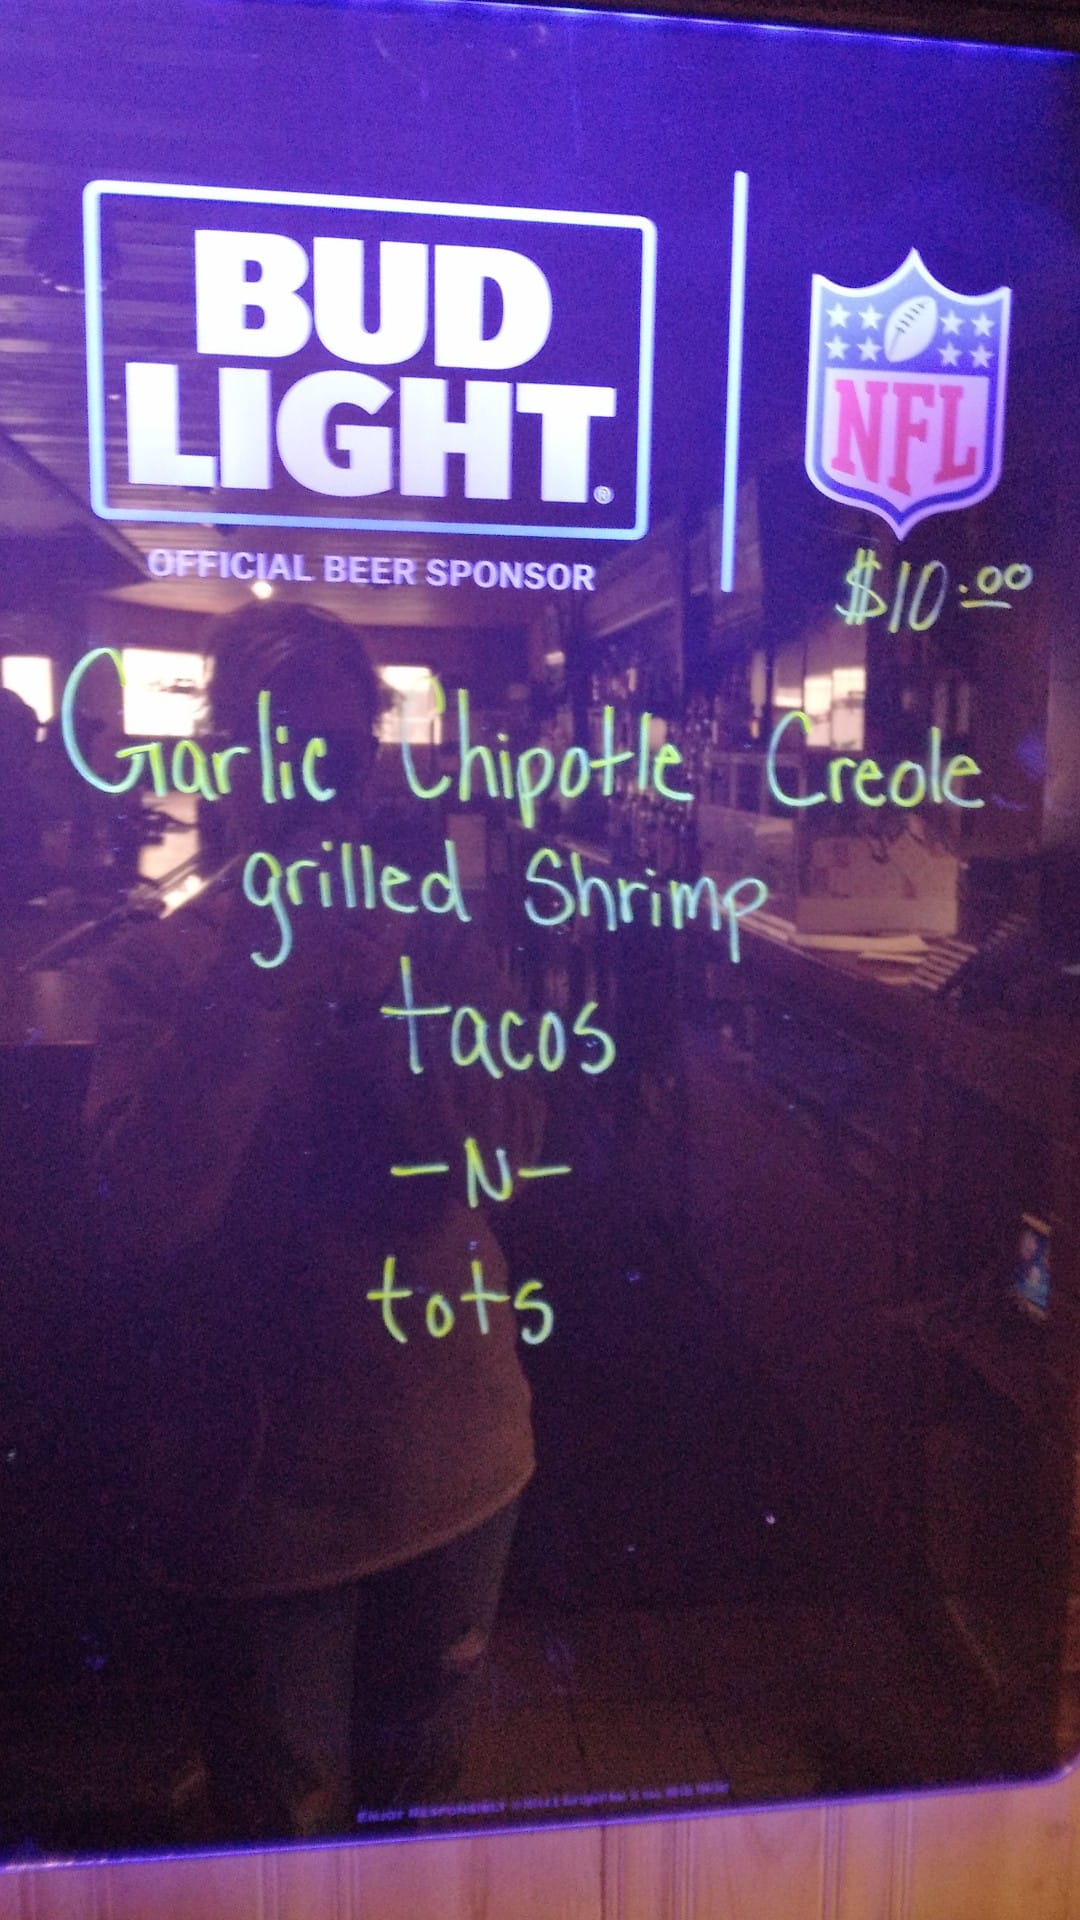 BUD
LIGHT®
OFFICIAL BEER SPONSOR
NFL
$10.00
Garlic Chipotle Creole
grilled Shrimp
tacos
-N-
tots
ENJOY RESPONSIBLY